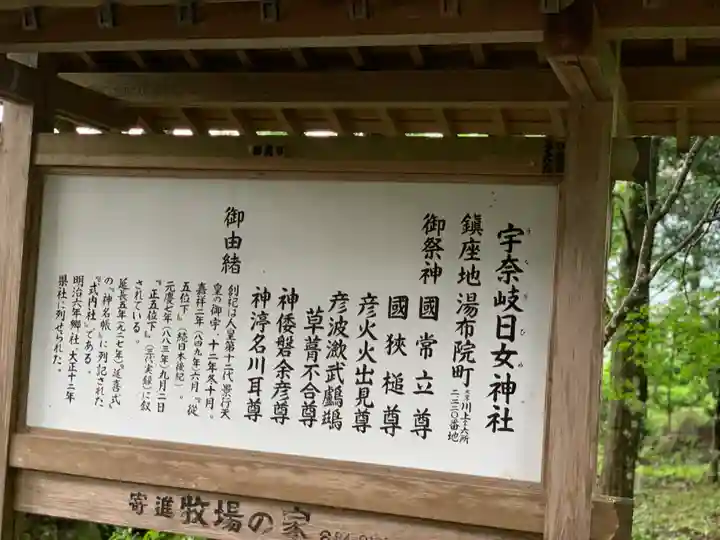 宇奈岐日女神社
うなぎひめ
鎮座地 湯布院町大字川上字六所二、二二〇番地
御祭神 國常立尊
國狹槌尊
彦火火出見尊
彦波瀲武鸕鷀
草葺不合尊
神倭磐余彦尊
神渟名川耳尊
御由緒
創祀は人皇第十二代、景行天
皇の御宇、十二年冬十月。
嘉祥二年（八四九年）六月『従
五位下』（続日本後紀）。
元慶七年（八八三年）九月二日
『正五位下』（三代実録）に叙
されている。
延長五年（九二七年）『延喜式』
の『神名帳』に列記された
『式内社』である。
明治六年郷社、大正十二年
県社に列せられた。
寄進 牧場の家